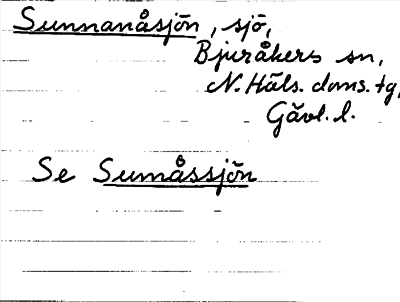 Sunnanåsjön, sjö,
Bjuråkers sn,
N. Häls. doms. tg,
Gävl. l.
Se Sumåssjön